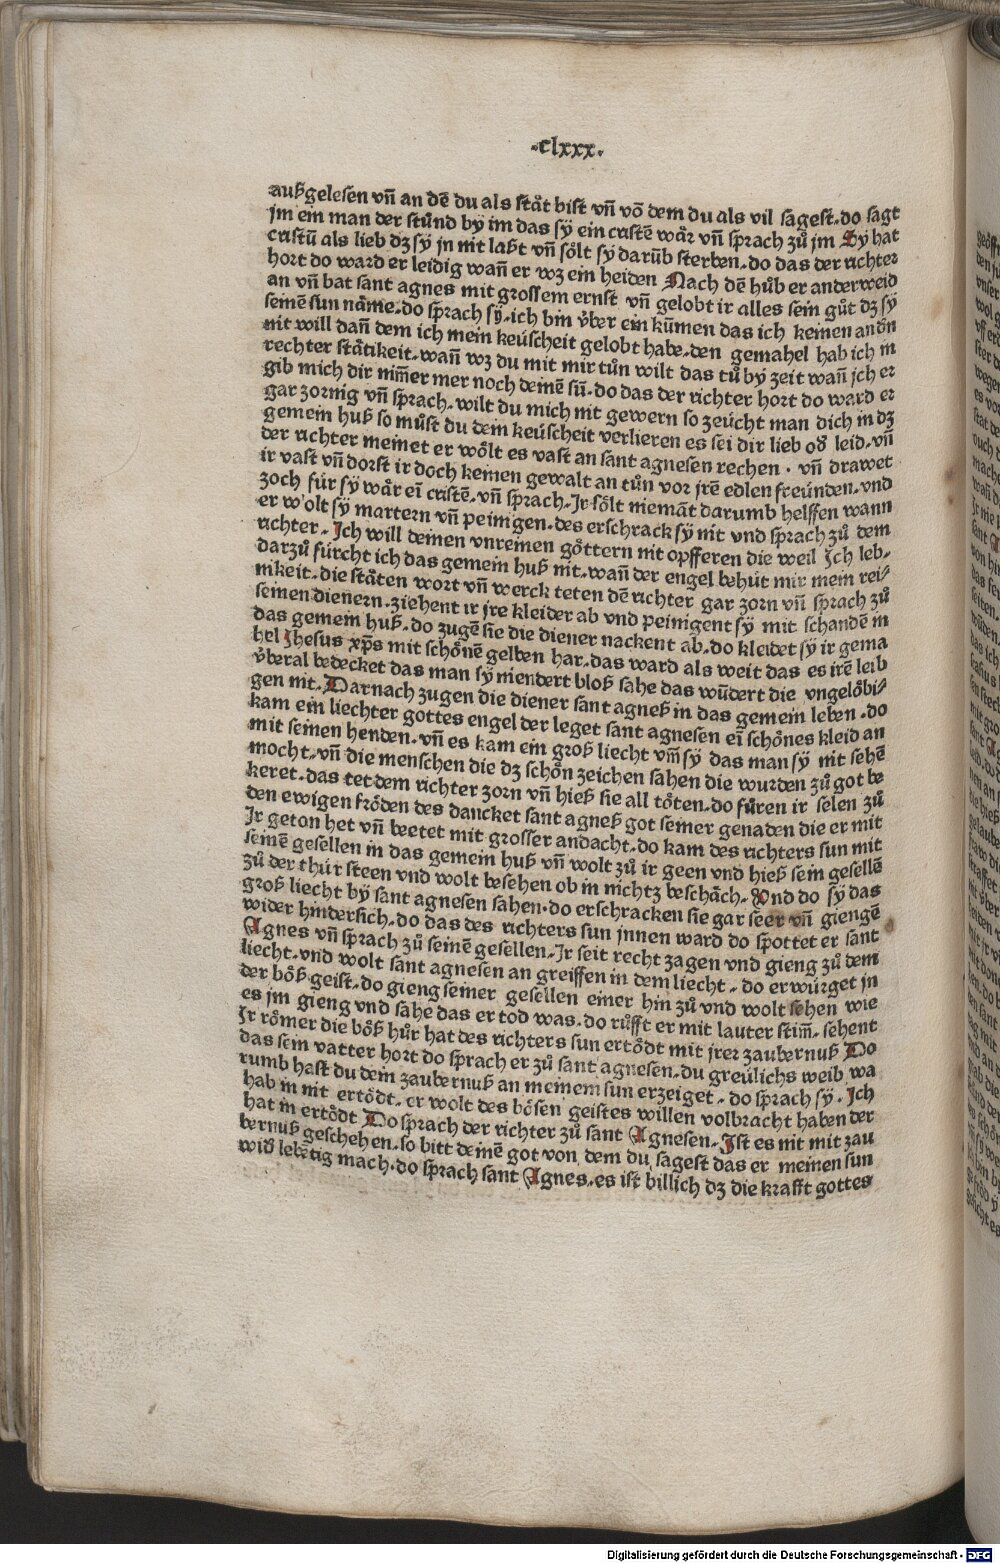 ·clxxx·
außgelesen vn̄ an dē du als ståt bist vn̄ vō dem du als vil sagest. do sagt
jm ein man der stůnd by im das sÿ ein cristē wår vn̄ sprach zů jm Sy hat
cristū als lieb dz sÿ jn nit laßt vn̄ sölt sÿ darūb sterben. do das der richter
hort do ward er leidig wan̄ er wz ein heiden Nach dē hůb er anderweid
an vn̄ bat sant agnes mit grossem ernst vn̄ gelobt ir alles sein gůt dz sÿ
seinē sun nåme. do sprach sÿ. ich bin v̊ber ein kūmen das ich keinen andn̄
nit will dan̄ dem ich mein keúscheit gelobt habe. den gemahel hab ich in
rechter ståtikeit. wan̄ wz du mit mir tůn wilt das tů by zeit wan̄ jch er
gib mich dir nim̄er mer noch deinē sū. do das der richter hort do ward er
gar zornig vn̄ sprach. wilt du mich nit gewern so zeúcht man dich in dz
gemein huß so můst du dem keúscheit verlieren es sei dir lieb od̄ leid. vn̄
der richter meinet er wölt es vast an sant agnesen rechen. vn̄ drawet
ir vast vn̄ dorst ir doch keinen gewalt an tůn vor jrē edlen freúnden. vnd
zoch für sÿ wår eī cristē. vn̄ sprach. Jr sölt niemāt darumb helffen wann
er wolt sÿ martern vn̄ peinigen. des erschrack sÿ nit vnd sprach zů dem
richter. Ich will deinen vnreinen göttern nit opfferen die weil Ich leb.
darzů fürcht ich das gemein huß nit. wan̄ der engel behüt mir mein rei⸗
nikeit. die ståten wort vn̄ werck teten dē richter gar zorn vn̄ sprach zů
seinen dienern. ziehent ir jre kleider ab vnd peinigent sÿ mit schandē in
das gemein huß. do zugē sie die diener nackent ab. do kleidet sÿ ir gema
hel Jhesus xp̄s mit schönē gelben har. das ward als weit das es irē leib
v̊beral bedecket das man sÿ niendert bloß sahe das wūdert die vngelöbi⸗
gen nit. Darnach zugen die diener sant agneß in das gemein leben. do
kam ein liechter gottes engel der leget sant agnesen eī schönes kleid an
mit seinen henden. vn̄ es kam ein groß liecht vm̄ sÿ das man sÿ nit sehē
mocht. vn̄ die menschen die dz schön zeichen sahen die wurden zů got be
keret. das tet dem richter zorn vn̄ hieß sie all töten. do füren ir selen zů
den ewigen fröden des dancket sant agneß got seiner genaden die er mit
Jr geton het vn̄ beetet mit grosser andacht. do kam des richters sun mit
seinē gesellen in das gemein huß vn̄ wolt zů ir geen vnd hieß sein gesellē
zů der thür steen vnd wolt besehen ob in nichtz beschåch. Vnd do sÿ das
groß liecht bÿ sant agnesen sahen. do erschracken sie gar seer vn̄ giengē
wider hindersich. do das des richters sun jnnen ward do spottet er sant
Agnes vn̄ sprach zů seinē gesellen. Jr seit recht zagen vnd gieng zů dem
liecht. vnd wolt sant agnesen an greiffen in dem liecht. do erwúrget jn
der böß geist. do gieng seiner gesellen einer hin zů vnd wolt sehen wie
es jm gieng vnd sahe das er tod was. do růfft er mit lauter stim̄. sehent
Jr römer die böß hůr hat des richters sun ertödt mit jrer zaubernuß Do
das sein vatter hort do sprach er zů sant agnesen. du greülichs weib wa
rumb hast du dein zaubernuß an meinem sun erzeiget. do sprach sÿ. Ich
hab in nit ertödt. er wolt des bösen geistes willen volbracht haben der
hat in ertödt Do sprach der richter zů sant Agnesen. Ist es nit mit zau
bernuß geschehen. so bitt deinē got von dem du sagest das er meinen sun
wid̄ lebētig mach. do sprach sant Agnes. es ist billich dz die krafft gottes
Digitalisierung gefördert durch die Deutsche Forschungsgemeinschaft - DFG